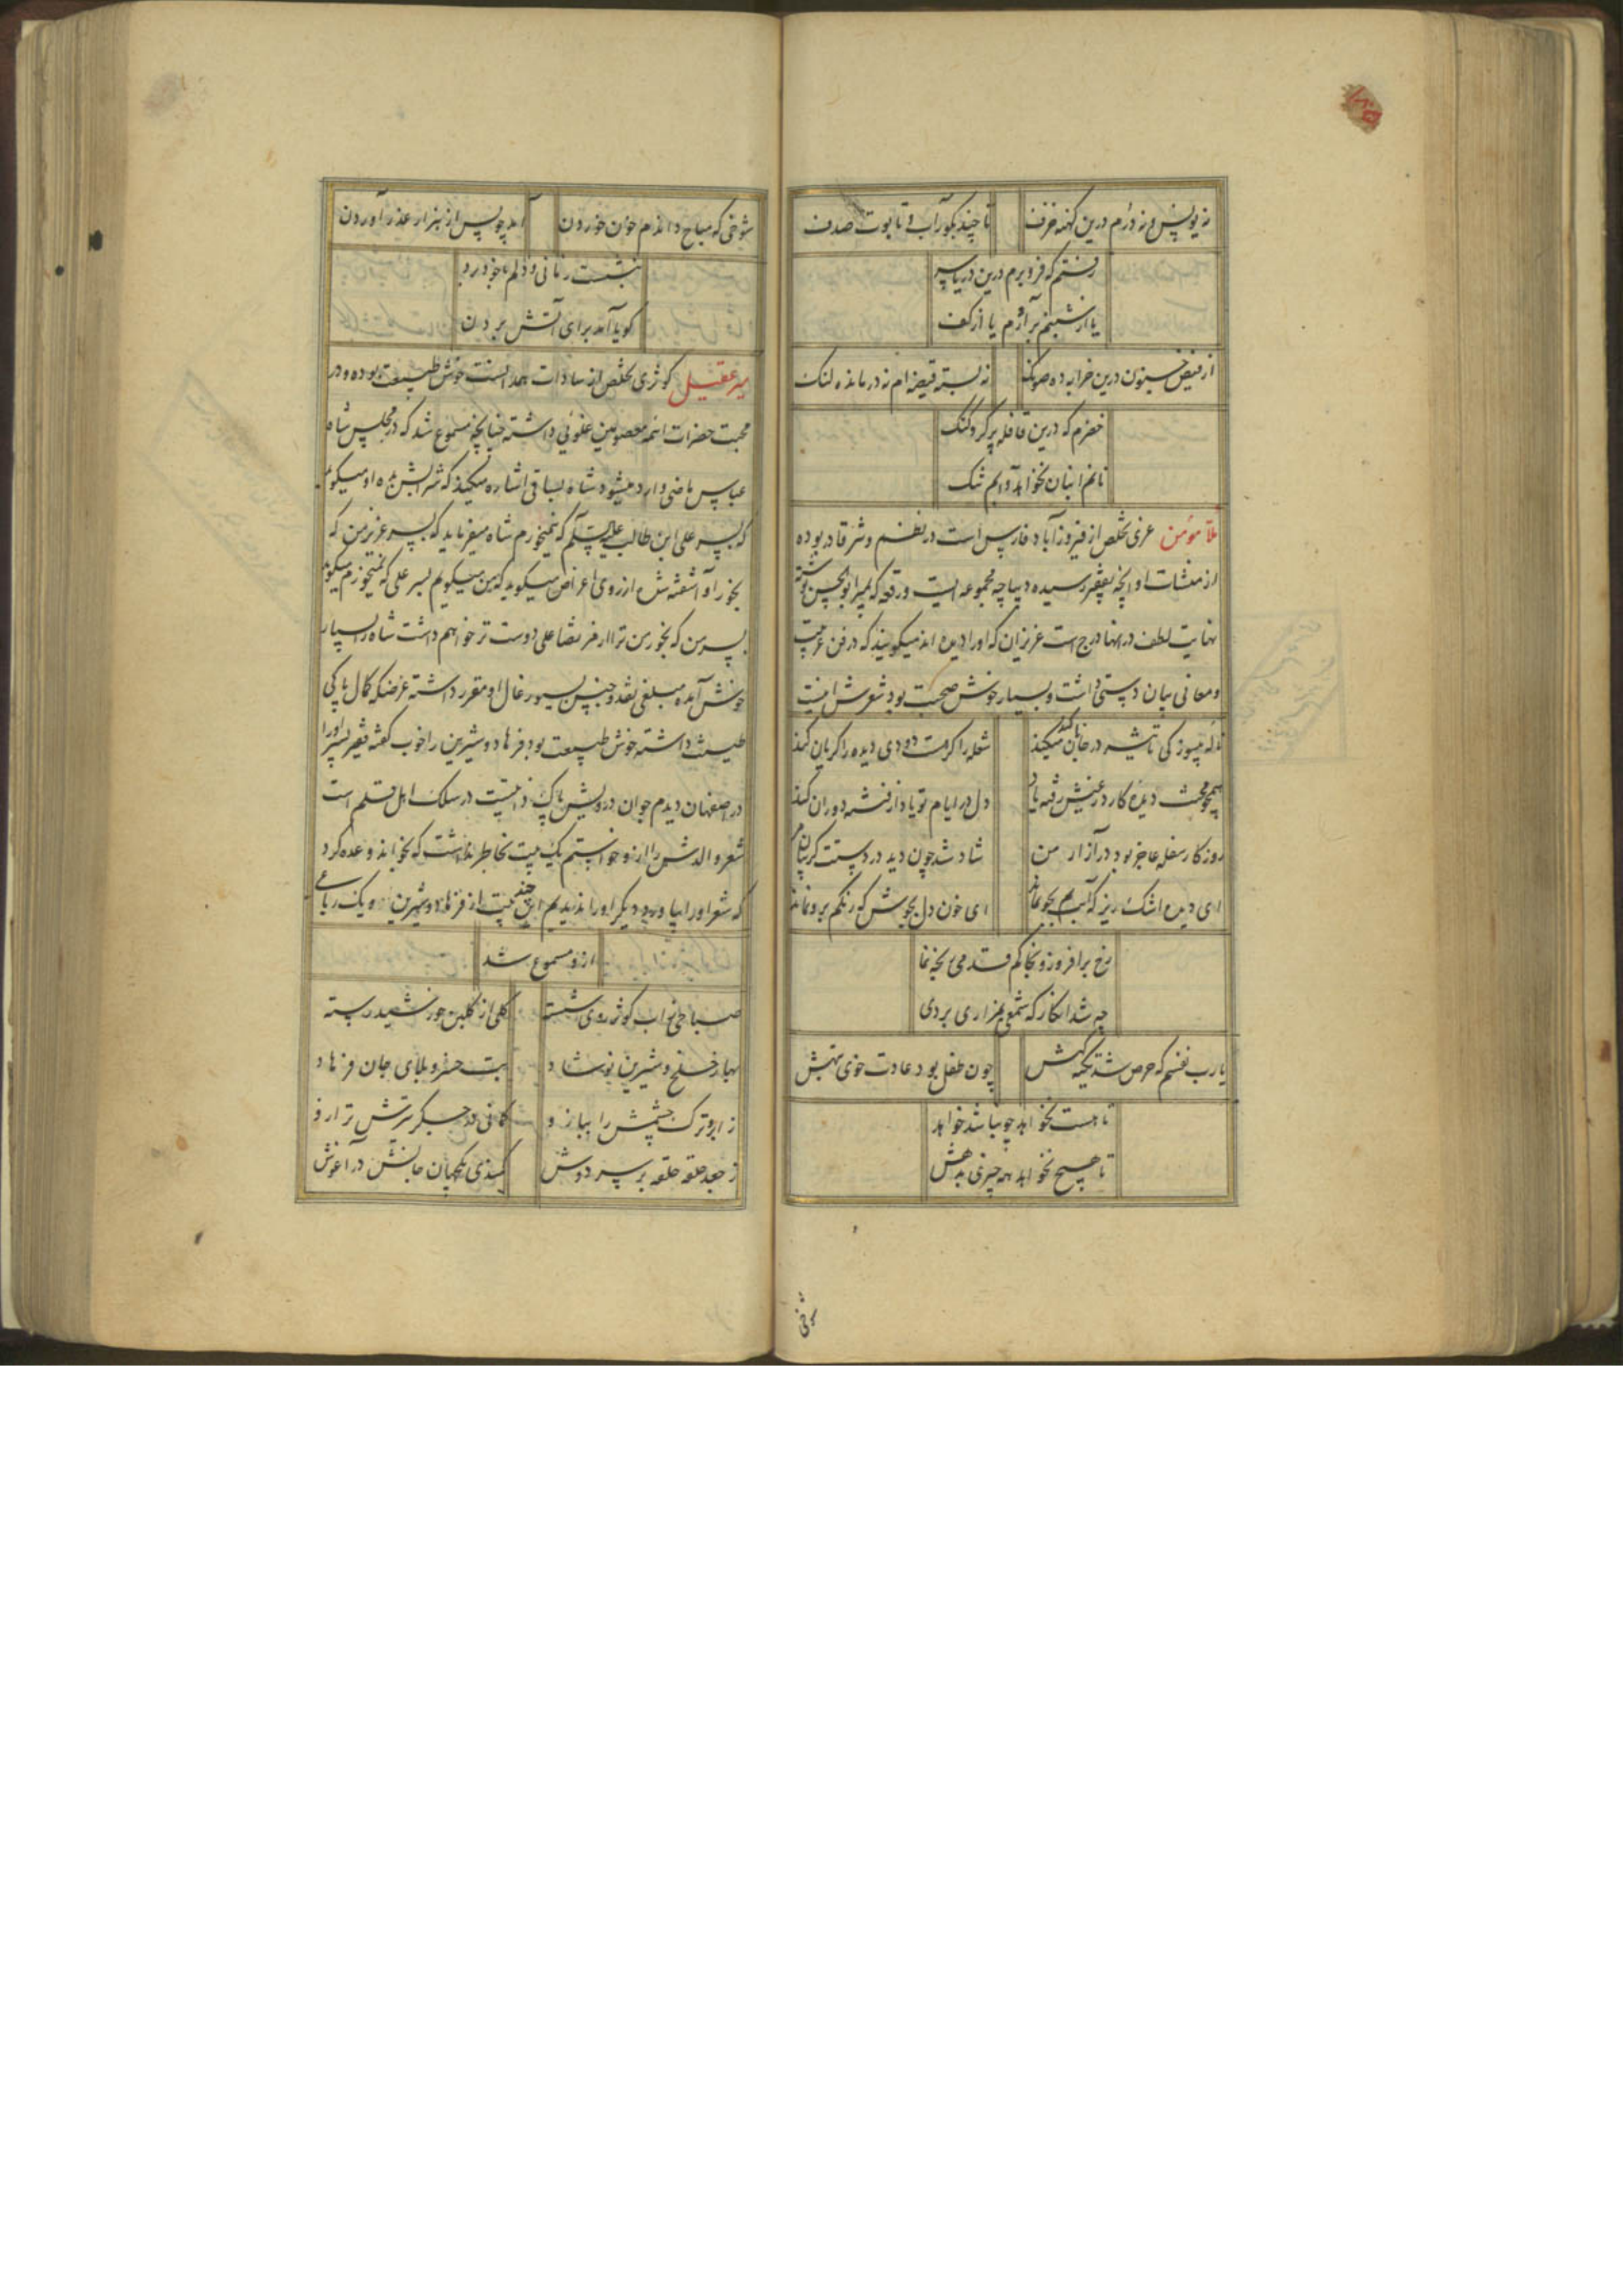 نه یونس و نه درم درین کهنه خزف
تا چند بکور آب و تابوت صدف
رفتم که فرو برم درین دریا سر
یا ارشبنم برآورم یا از کف
از فیض جنون درین خرابه ده
نه بسته قیصرام نه درمانده لنک
خضرم که درین قافله پر کر و کنک
نانم انبان نخواهد و آبم تنک
ملا مؤمن عزی تخلص از فیروزآباد فارس است در نظم و نثر قادر بوده
از منشات او آنچه بفقیر رسیده دیباچه مجموعه ایست و رقعه که بمیر ابوالحسن نوشته
نهایت لطف در انها درج است عزیزان که او را دیده اند میکویند که در فن عربیت
و معانی بیان دستی داشت و بسیار خوش صحبت بود شعرش اینست
ناله پرسوز کی تاثیر در جانان کند
شعله را کرمست دودی دیده را کریان کند
دل در ایام تو یاد از فتنه دوران کند
روزکار سفله عاجز بود در آزار من
شاد شد چون دید در دستت کریبان مرا
ای دیده اشک ریز که آبم بجو نماند
ای خون دل بجوش که رنکم برو نماند
رخ برافروز و بخاکم قدمی رنجه نما
چه شد انکار که شمعی بمزاری بردی
یارب نفسم که حرص شد تکیه کهش
چون طفل بود عادت خوی تبهش
تا هست نخواهد چو نباشد خواهد
تا هیچ نخواهد همه چیزی بدهش
شوخی
شوخی که مباح داندم خون خوردن
آمد چو پس از هزار عذر آوردن
ننشست زمانی و دلم با خود برد
کویا آمد برای آتش بردن
میر عقیل کوثری تخلص از سادات همدانست خوش طبیعت بوده و در
محبت حضرات ائمه معصومین غلوئی داشته چنانچه مسموع شد که در مجلس شاه
عباس ماضی وارد میشود شاه بساقی اشاره میکند که شرابش بده او میکوید
که بسر علی ابن طالب علیه السلم که نمیخورم شاه میفرماید که بسر عزیز من که
بخور او آشفته شده از روی اعراض میکوید که من میکویم بسر علی که نمیخورم میکوید
بسر من که بخور من ترا از مرتضا علی دوست تر خواهم داشت شاه را بسیار
خوش آمده مبلغی نقد و جنس بسیورغال او مقرر داشته غرضکه کمال پاکی
طینت داشته خوش طبیعت بود فرهاد و شیرین را خوب کفته فقیر پسر او را
در اصفهان دیدم جوان درویش پاک ذاتیست در سلک اهل قلم است
شعر والدش را ازو خواستم یک بیت بخاطر نداشت که بخواند وعده کرد
که شعر او را بیاورد و دیکر او را ندیدم این چند بیت از فرهاد و شیرین و یک رباعی
ازو مسموع شد
صباحی ز آب کوثر روی شسته
کلی از کلبن خورشید رسته
بهار خلخ و شیرین نوشاد
بت خسرو بلای جان فرهاد
ز ابرو ترک چشمش را ببازو
کمانی در جکر تیرش ترازو
ز جعد حلقه حلقه بر سر دوش
کمندی نکهبان جانش در آغوش